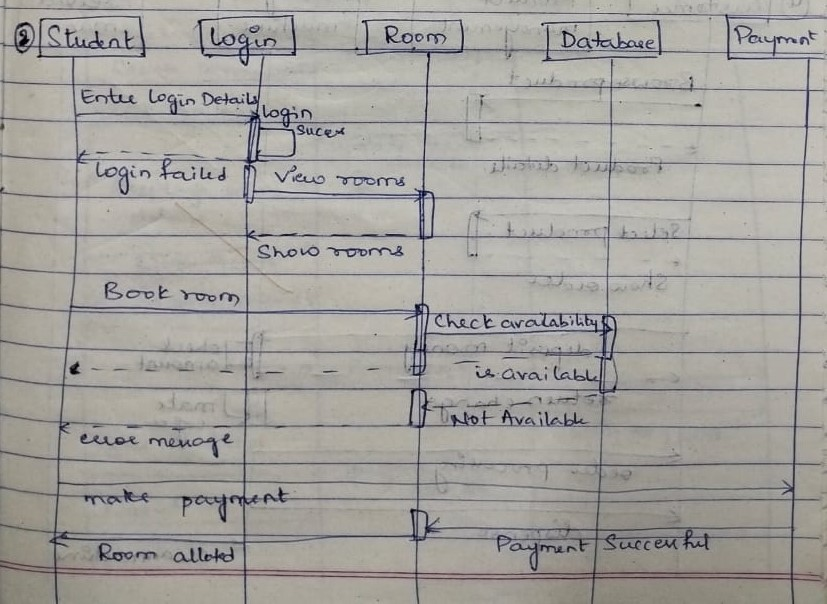 ② Student Login Room Database Payment
Enter login Details
login
Succes
login failed
View rooms
Show rooms
Book room
Check avalability
is available
Not Available
error message
make payment
Payment Successful
Room alloted